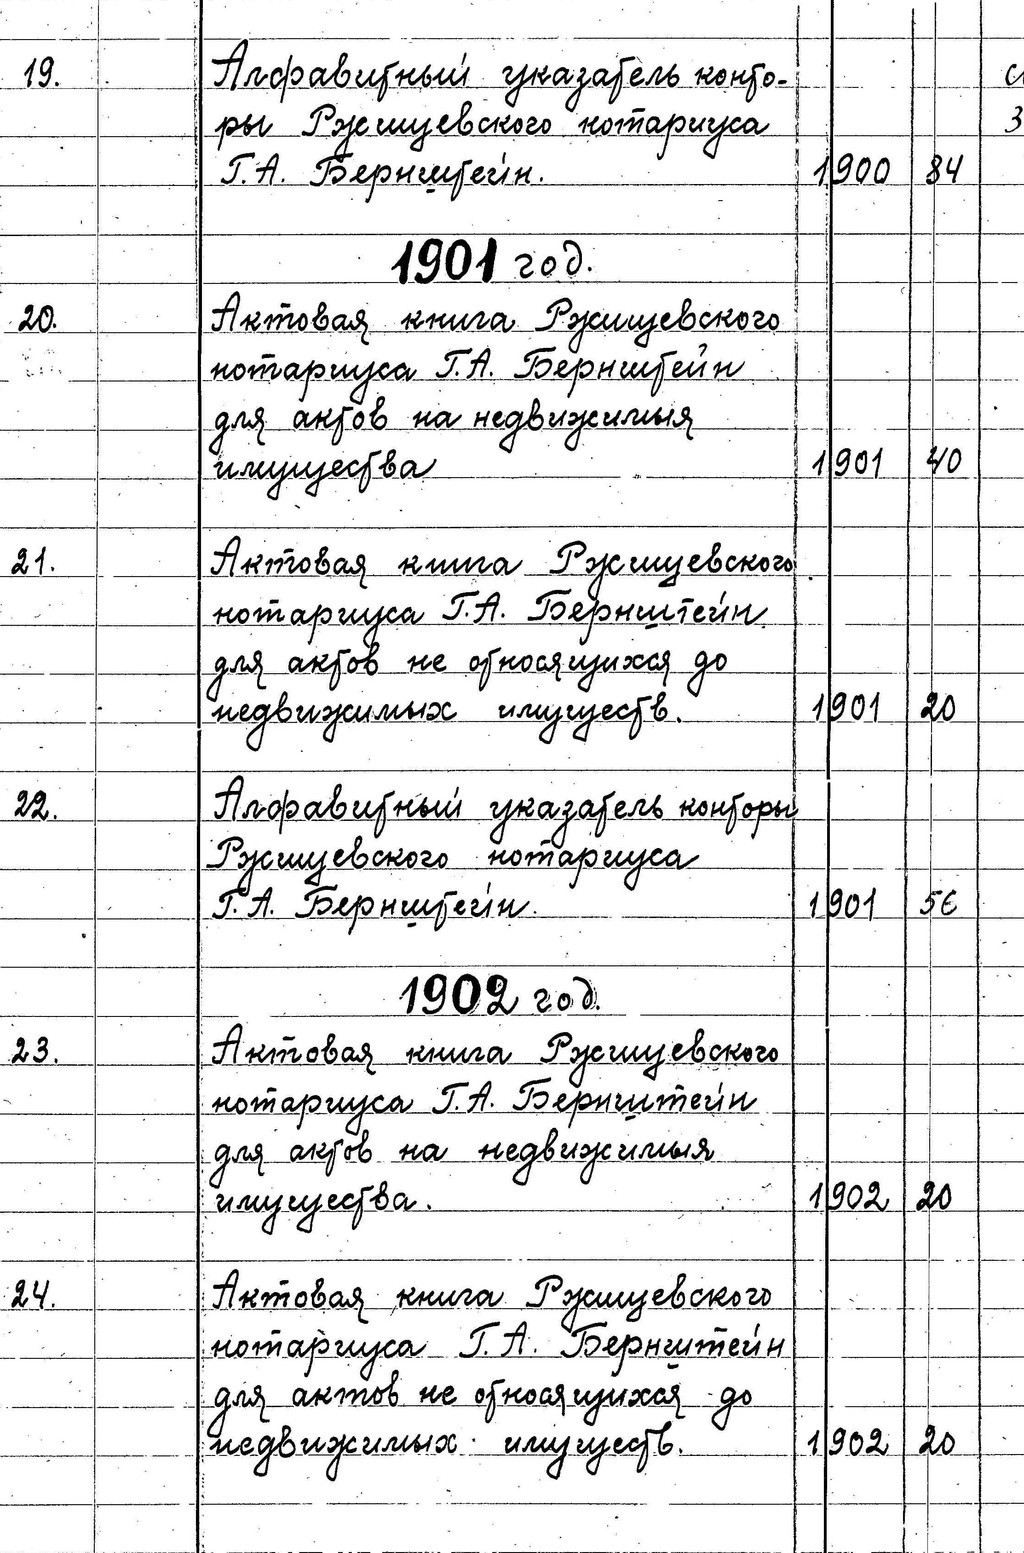 19. Алфавитный указатель конто-
ры Ржищевского нотариуса
Г.А. Бернштейн. 1900 84
1901 год.
20. Актовая книга Ржищевского
нотариуса Г.А. Бернштейн
для актов на недвижимыя
имущества 1901 40
21. Актовая книга Ржищевского
нотариуса Г.А. Бернштейн
для актов не относящихся до
недвижимых имуществ. 1901 20
22. Алфавитный указатель конторы
Ржищевского нотариуса
Г.А. Бернштейн. 1901 56
1902 год.
23. Актовая книга Ржищевского
нотариуса Г.А. Бернштейн
для актов на недвижимыя
имущества. 1902 20
24. Актовая книга Ржищевского
нотариуса Г.А. Бернштейн
для актов не относящихся до
недвижимых имуществ. 1902 20